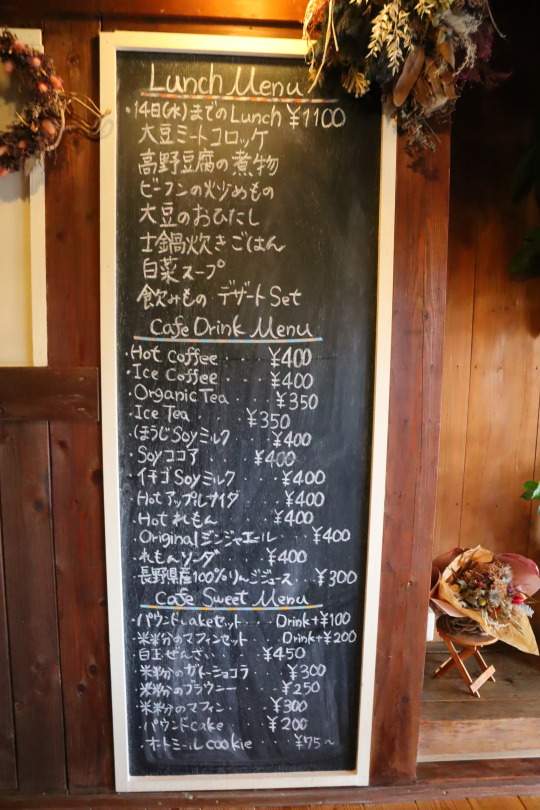 Lunch Menu
・14日(水)までのLunch ¥1100
大豆ミートコロッケ
高野豆腐の煮物
ビーフンの炒めもの
大豆のおひたし
土鍋炊きごはん
白菜スープ
飲みもの デザートSet
Cafe Drink Menu
・Hot coffee ・・・・ ¥400
・Ice Coffee ・・・ ¥400
・Organic Tea ・・・ ¥350
・Ice Tea ・・・ ¥350
・ほうじSoyミルク ・・・ ¥400
・Soyココア ・・・ ¥400
・イチゴSoyミルク ・・・ ¥400
・Hotアップルサイダ ・・・ ¥400
・Hotれもん ・・・ ¥400
・Originalジンジャエール ・・・ ¥400
・れもんソーダ ・・・ ¥400
・長野県産100%りんごジュース ・・・ ¥300
Cafe Sweet Menu
・パウンドcakeセット ・・・ Drink+¥100
・米粉のマフィンセット Drink+¥200
・白玉ぜんざい ・・・ ¥450
・米粉のガトーショコラ ・・・ ¥300
・米粉のブラウニー ・・・ ¥250
・米粉のマフィン ・・・ ¥300
・パウンドcake ・・・ ¥200
・オートミールcookie ・・・ ¥75～